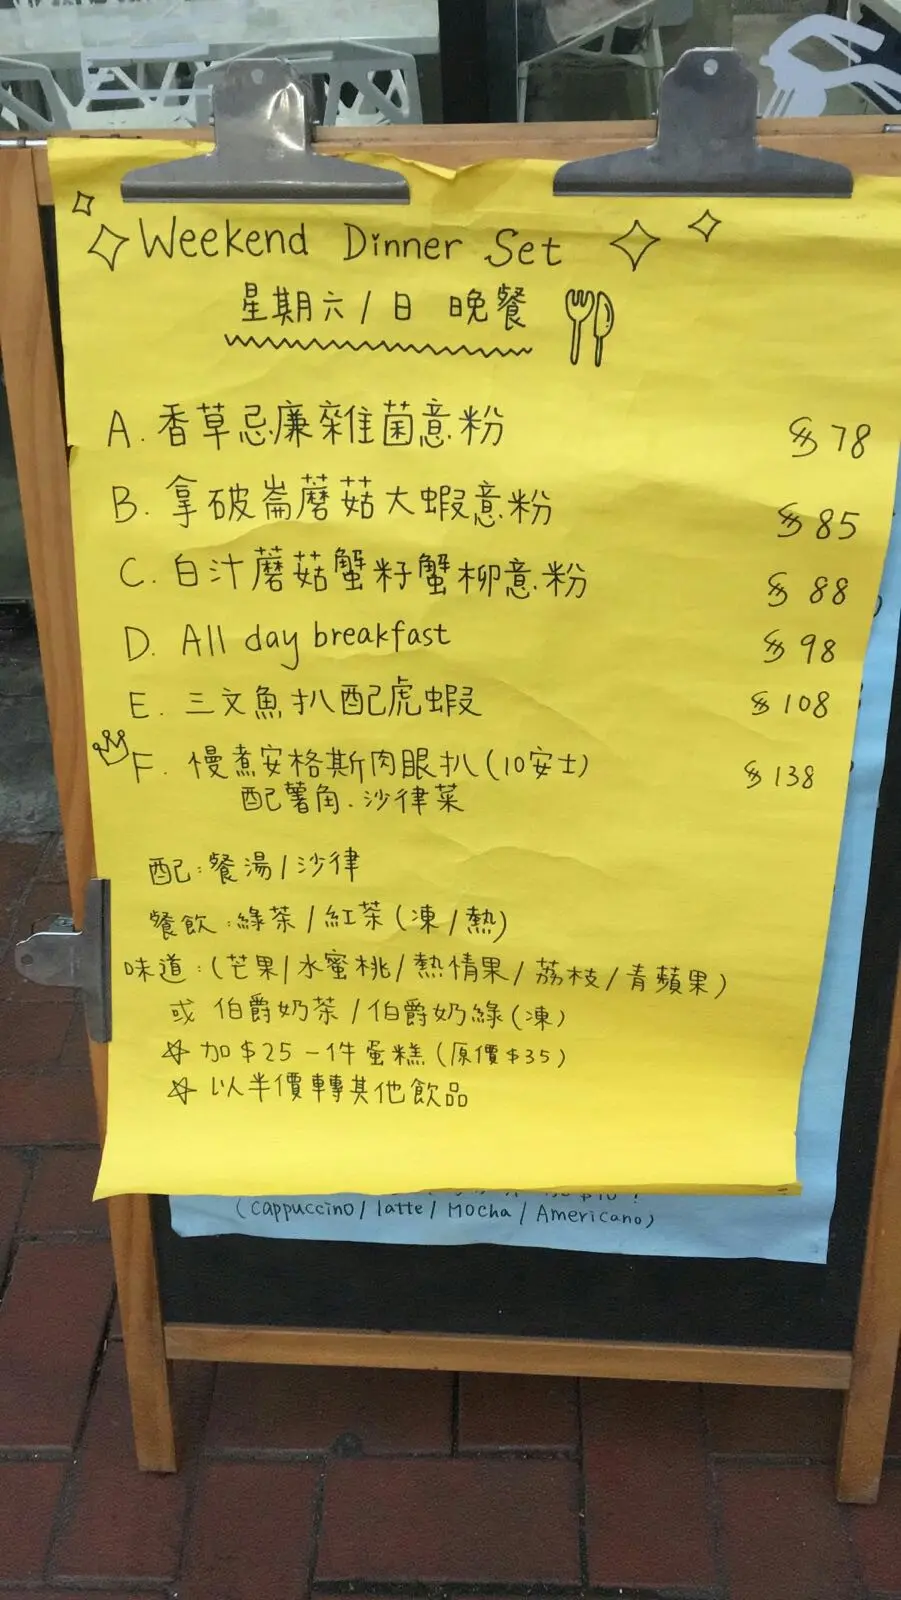 Weekend Dinner Set
星期六/日 晚餐
A. 香草忌廉雜菌意粉 $78
B. 拿破崙蘑菇大蝦意粉 $85
C. 白汁蘑菇蟹籽蟹柳意粉 $88
D. All day breakfast $98
E. 三文魚扒配虎蝦 $108
F. 慢煮安格斯肉眼扒(10安士) $138
配薯角.沙律菜
配:餐湯/沙律
餐飲:綠茶/紅茶(凍/熱)
味道:(芒果/水蜜桃/熱情果/荔枝/青蘋果)
或 伯爵奶茶/伯爵奶綠(凍)
加$25一件蛋糕(原價$35)
以半價轉其他飲品
(cappuccino/latte/Mocha/Americano)